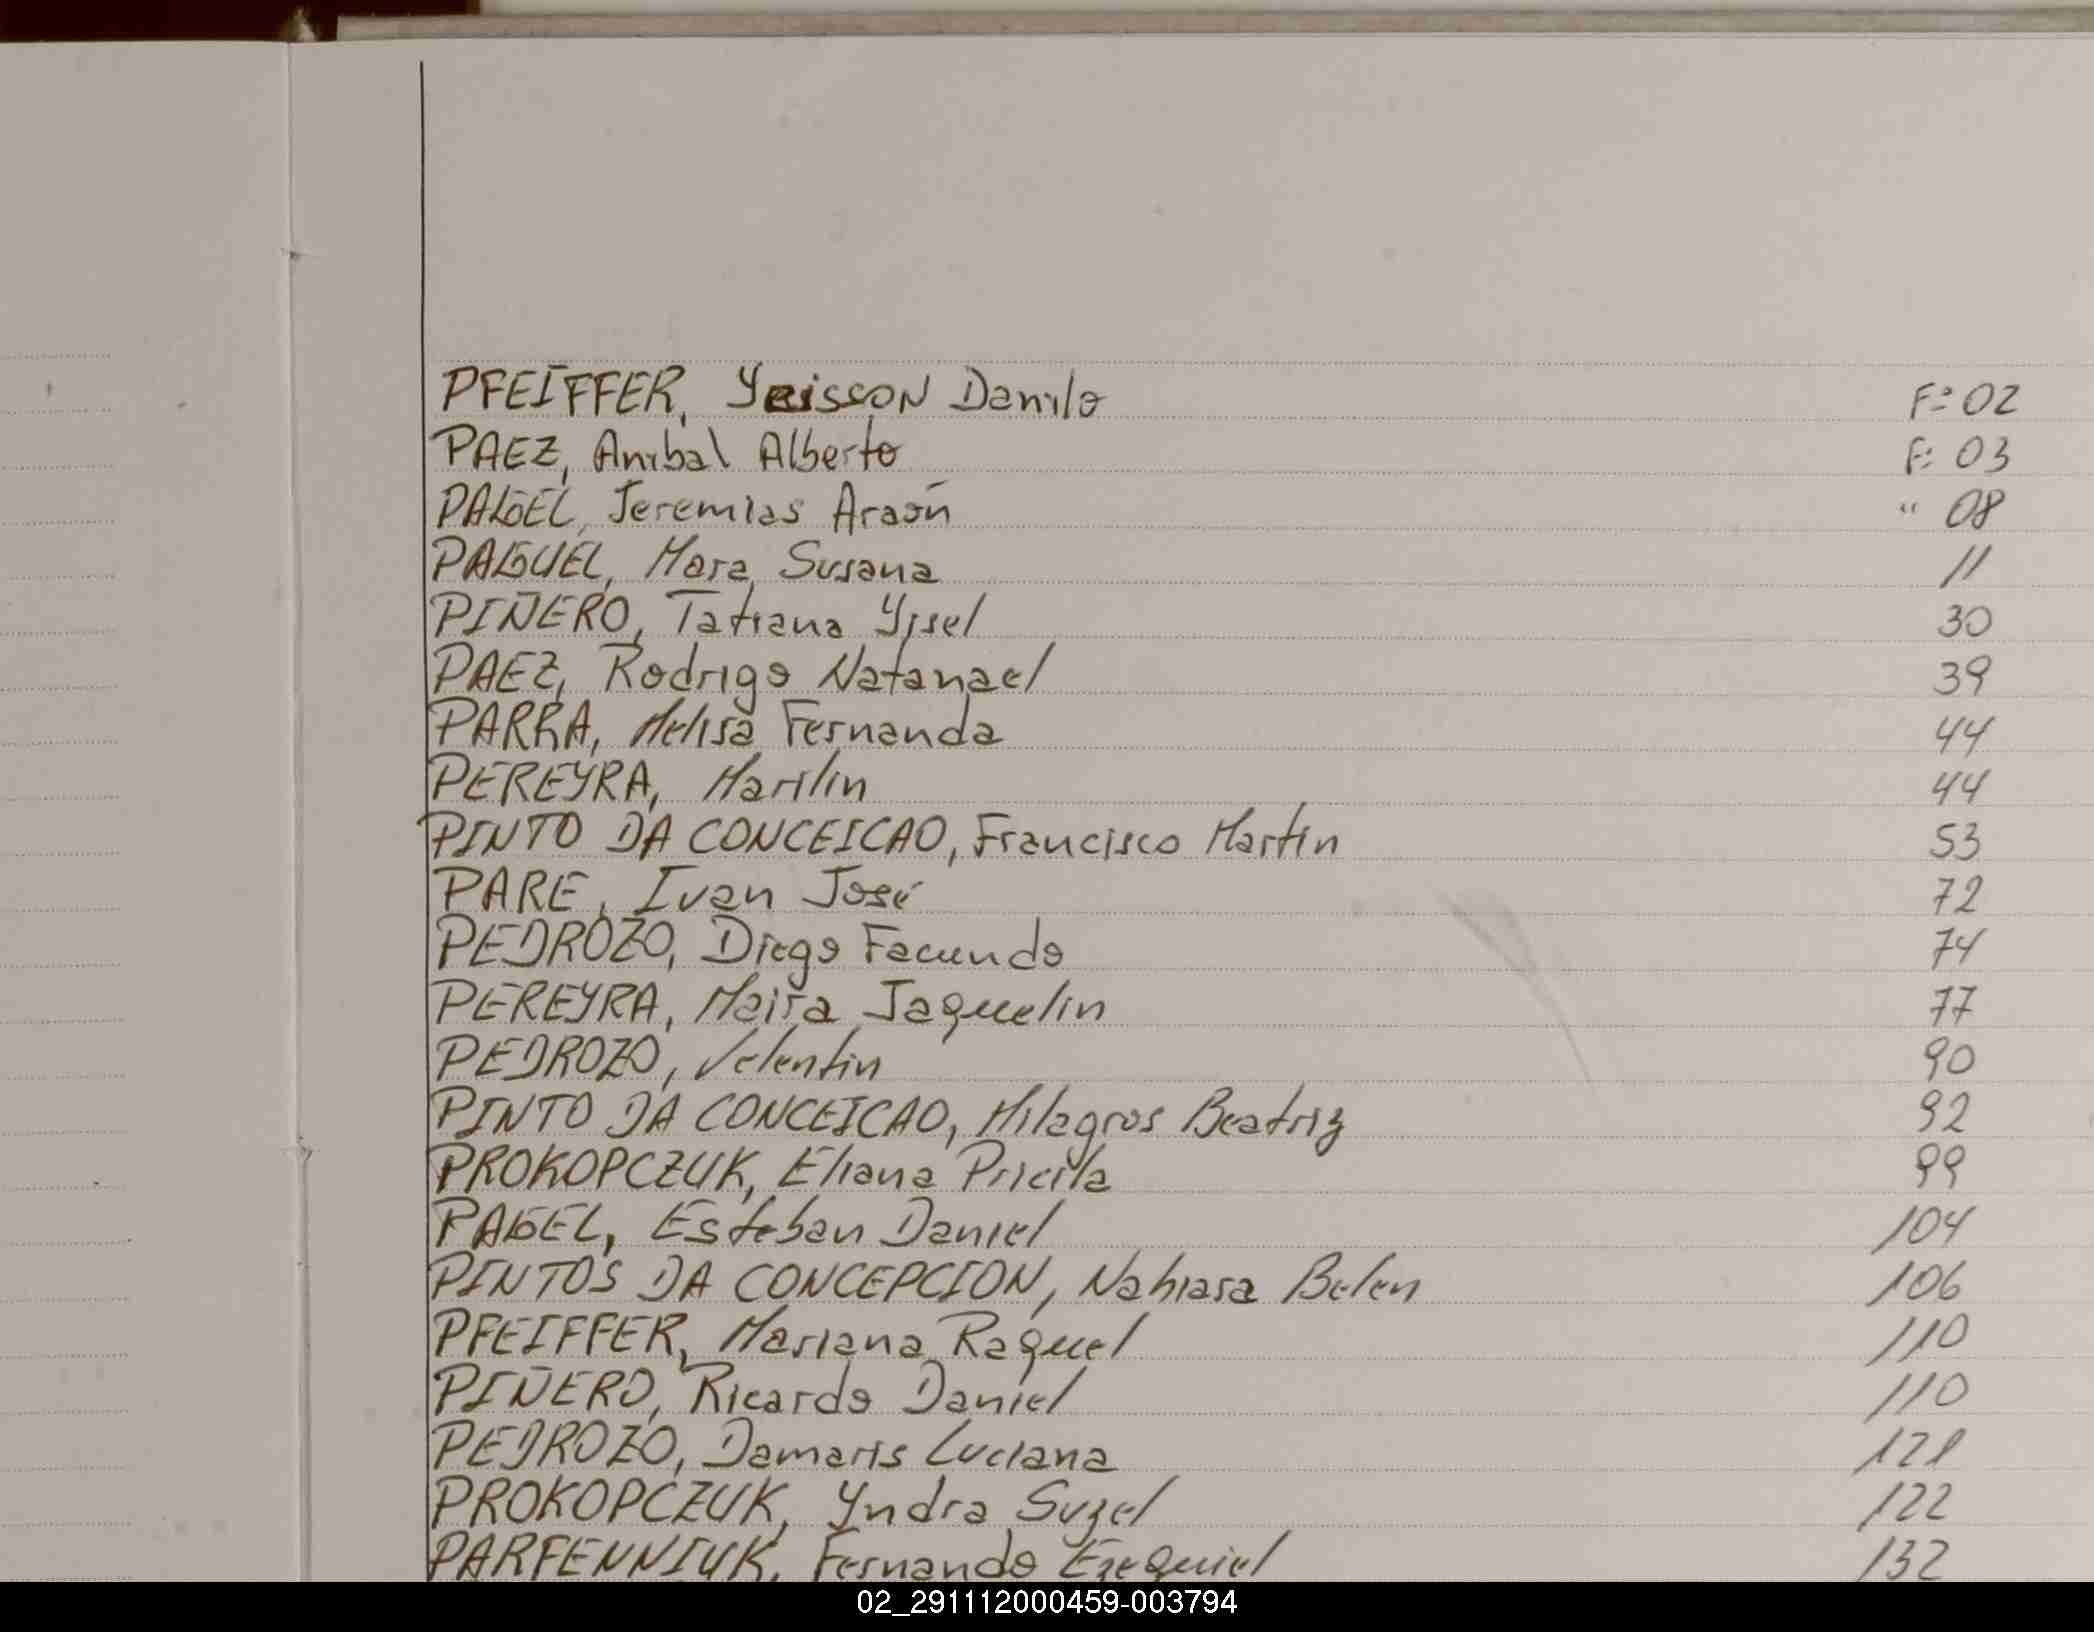 PFEIFFER, Yeisson Danilo F: 02
PAEZ, Anibal Alberto F: 03
PAGEL, Jeremias Araón " 08
PAGUEL, Mara Susana 11
PIÑERO, Tatiana Yisel 30
PAEZ, Rodrigo Natanael 39
PARRA, Melisa Fernanda 44
PEREYRA, Marilin 44
PINTO DA CONCEICAO, Francisco Martin 53
PARE, Ivan José 72
PEDROZO, Diego Facundo 74
PEREYRA, Maira Jaquelin 77
PEDROZO, Valentin 90
PINTO DA CONCEICAO, Milagros Beatriz 92
PROKOPCZUK, Eliana Pricila 99
PAGEL, Esteban Daniel 104
PINTOS DA CONCEPCION, Nahiara Belen 106
PFEIFFER, Mariana Raquel 110
PIÑERO, Ricardo Daniel 110
PEDROZO, Damaris Luciana 121
PROKOPCZUK, Yndra Suzel 122
PARFENNIUK, Fernando Ezequiel 132
02_291112000459-003794